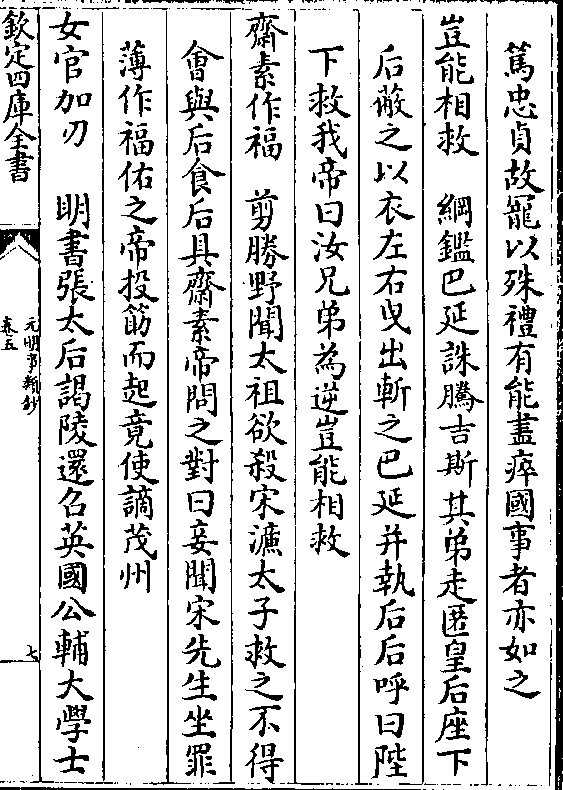 篤忠貞故寵以殊禮有能盡瘁國事者亦如之
豈能相救　綱鑑巴延誅騰吉斯其弟走匿皇后座下
后蔽之以衣左右曳出斬之巴延并執后后呼曰陛
下救我帝曰汝兄弟為逆豈能相救
齋素作福　剪勝野聞太祖欲殺宋濂太子救之不得
會與后食后具齋素帝問之對曰妾聞宋先生坐罪
薄作福佑之帝投筯而起竟使謫茂州
女官加刃　明書張太后謁陵還召英國公輔大學士
欽定四庫全書
元明事類鈔
卷五
七